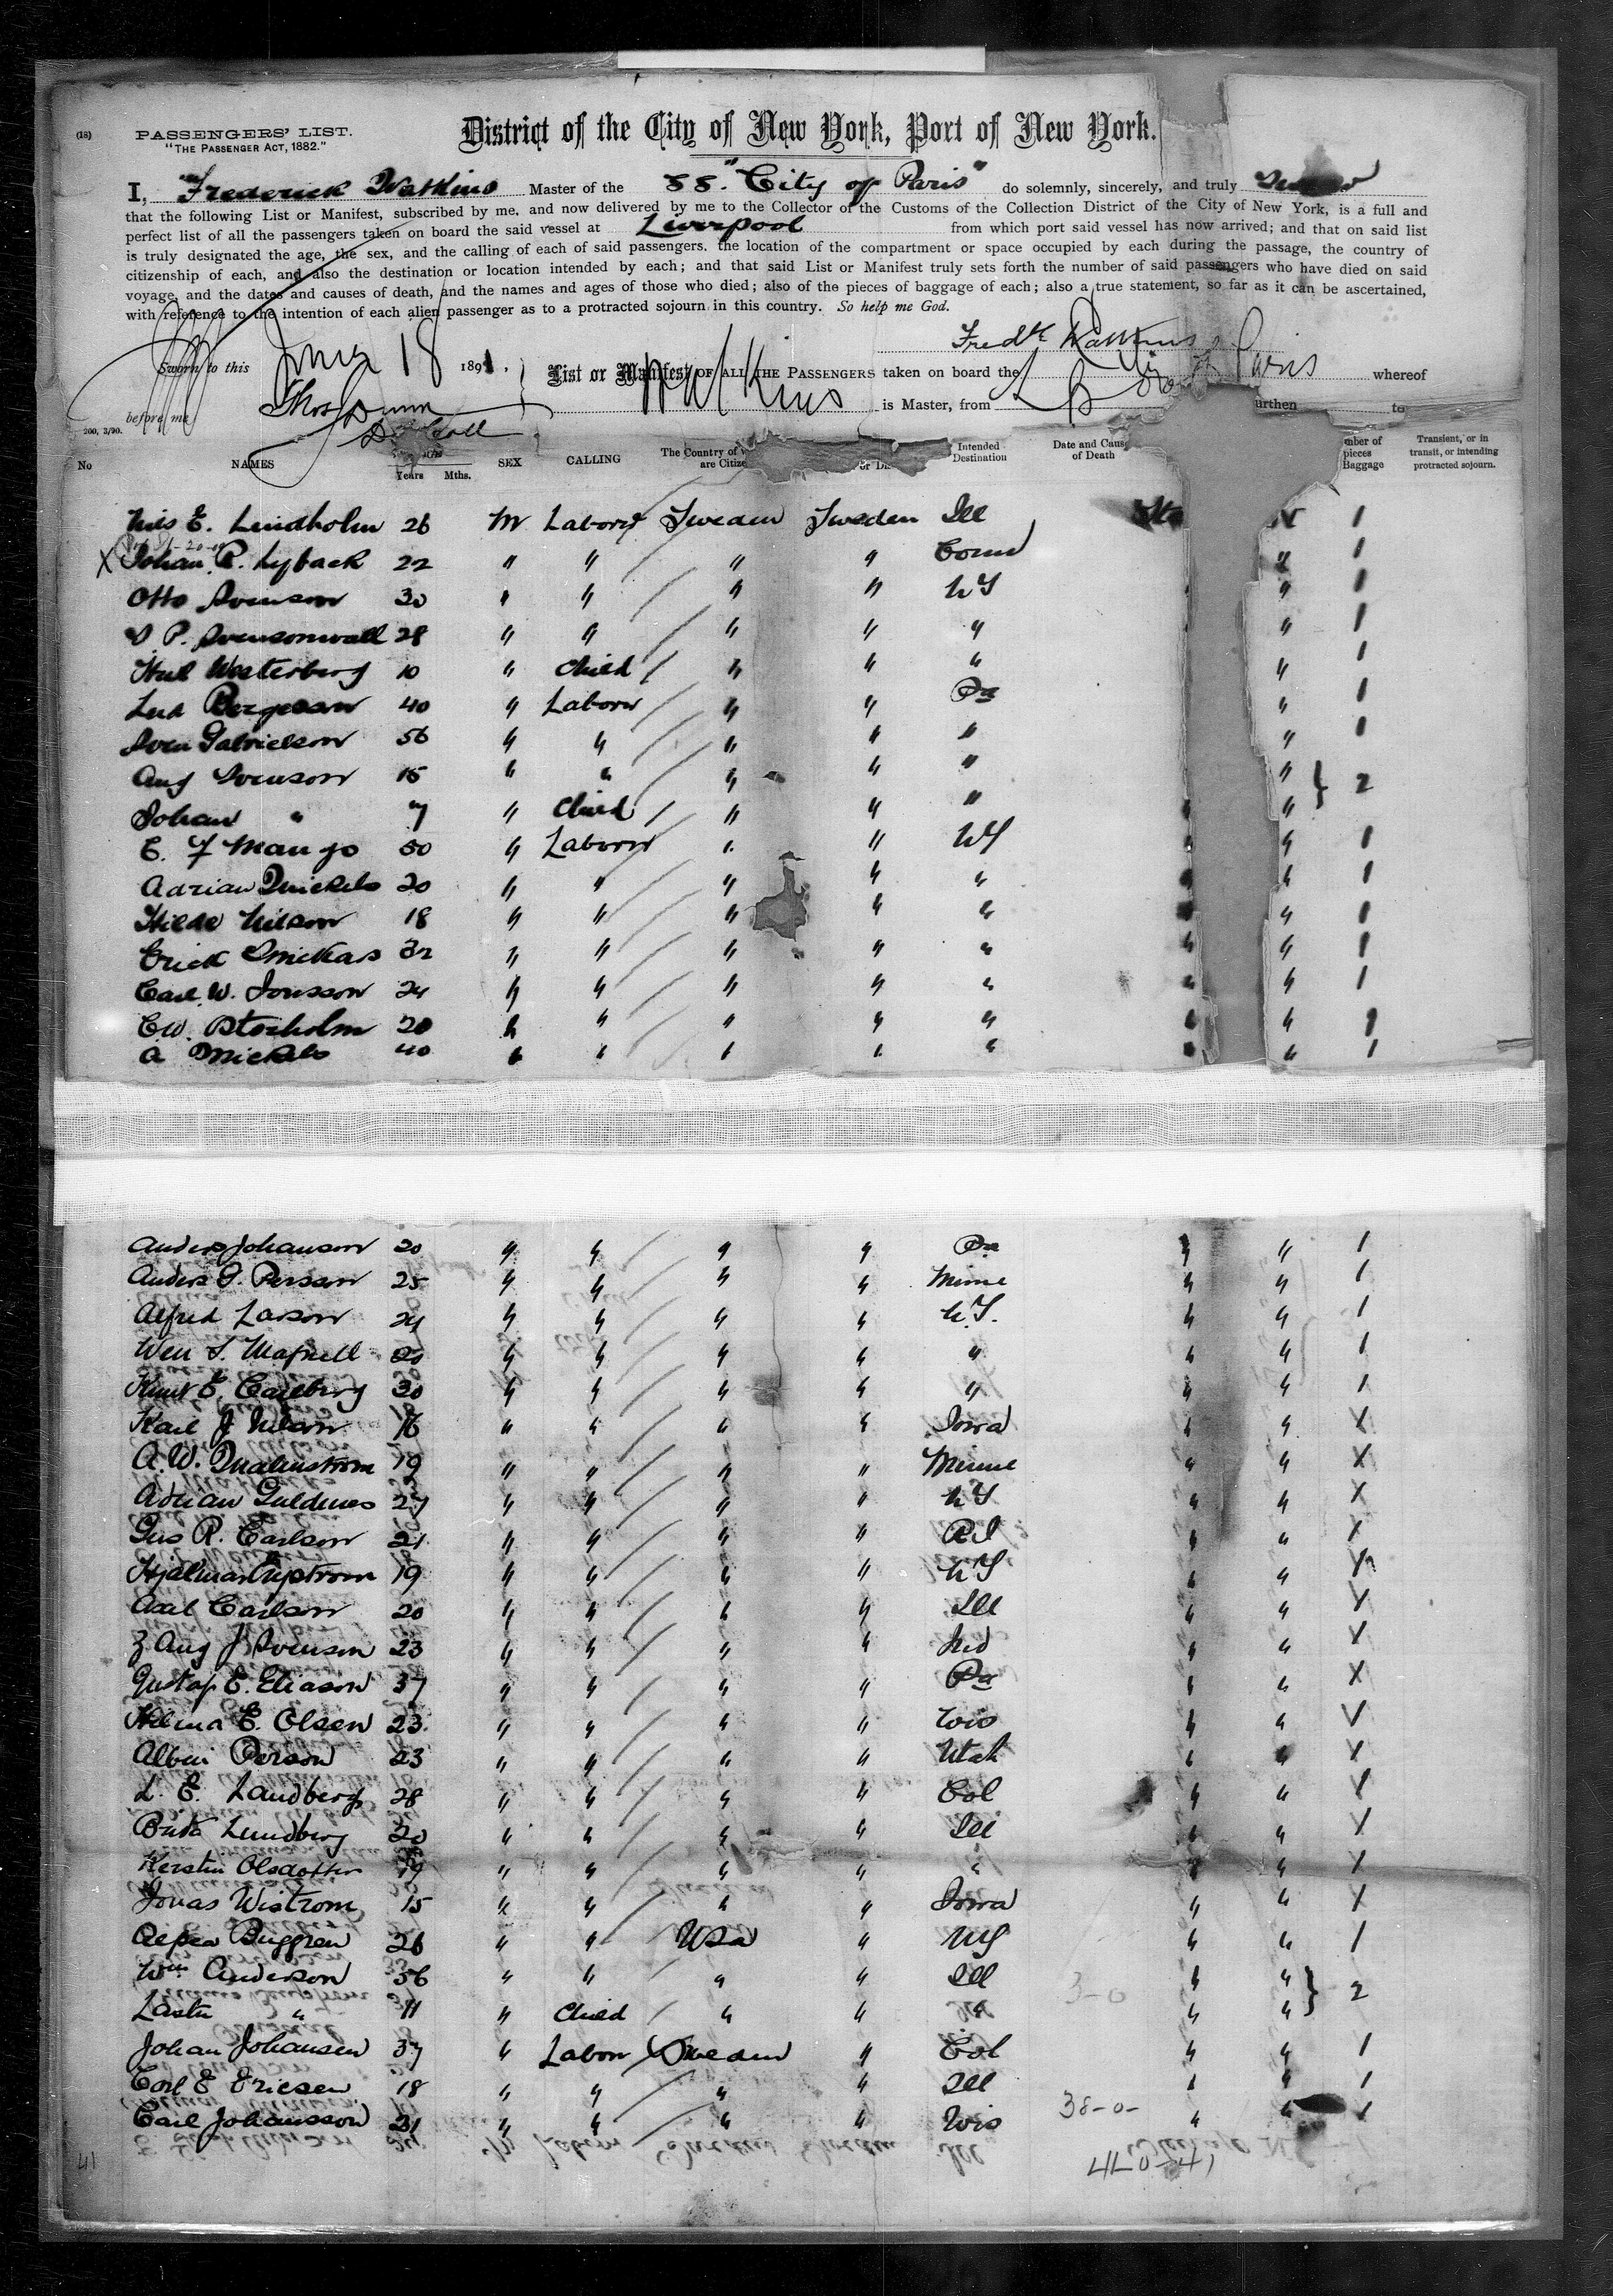 (18)
PASSENGERS' LIST.
"THE PASSENGER ACT, 1882."
District of the City of New York, Port of New York.
I, Frederick Watkins Master of the SS. "City of Paris" do solemnly, sincerely, and truly
that the following List or Manifest, subscribed by me, and now delivered by me to the Collector of the Customs of the Collection District of the City of New York, is a full and
perfect list of all the passengers taken on board the said vessel at Liverpool from which port said vessel has now arrived; and that on said list
is truly designated the age, the sex, and the calling of each of said passengers, the location of the compartment or space occupied by each during the passage, the country of
citizenship of each, and also the destination or location intended by each; and that said List or Manifest truly sets forth the number of said passengers who have died on said
voyage, and the dates and causes of death, and the names and ages of those who died; also of the pieces of baggage of each; also a true statement, so far as it can be ascertained,
with reference to the intention of each alien passenger as to a protracted sojourn in this country. So help me God.
Fredk Watkins
Sworn to this 18 1891, List or Manifest OF ALL THE PASSENGERS taken on board the Paris whereof
before me Thos Dunn Watkins is Master, from to
200, 3/90.
No NAMES Years Mths. SEX CALLING The Country of are Citize Intended Destination Date and Caus of Death mber of pieces Baggage Transient, or in transit, or intending protracted sojourn.
Nils E. Lindholm 26 M Laborr Sweden Sweden Ill 1
X Johan R. Lyback 22 " " " " Conn " 1
Otto Svenson 30 " " " " NY " 1
P. Svensonwall 28 " " " " " " 1
Westerberg 10 " Child " " " " 1
Bergeson 40 " Laborr " " Pa " 1
Sven Gabrielson 56 " " " " " " 1
Aug Svenson 15 " " " " " " } 2
Johan " 7 " Child " " " "
C. F 50 " Laborr " " NY " 1
Adrian 20 " " " " " " " 1
Hilda Nilson 18 " " " " " " " 1
Erick 32 " " " " " " " 1
Carl W. Jonsson 24 " " " " " " " 1
C.W. Storholm 20 " " " " " " " 1
A Mickels 40 " " " " " " " 1
Anders Johanson 20 " " " " Pa " " 1
Anders G. Person 25 " " " " Minne " " 1
Alfred Larson 24 " " " " N.Y. " " 1
20 " " " " " " " 1
Knut E. Carlberg 30 " " " " " " " 1
Karl J Nilson 16 " " " " Iowa " " X
A.W. Malmstrom 19 " " " " Minne " " X
Adrian 27 " " " " NY " " X
Gus R. Carlson 21 " " " " R.I " " 1
Hjalmar Nystrom 19 " " " " NY " " X
Axel Carlson 20 " " " " Ill " " X
Aug J. Svenson 23 " " " " " " X
Gustaf E. Eliason 37 " " " " Pa " " X
Hilma E. Olsen 23 " " " " Wis " " V
Albin Person 23 " " " " Utah " " X
L. E. Landberg 28 " " " " Col " " X
Brita Lundberg 20 " " " " Ill " " X
Kerstin Olsdotter 19 " " " " " " " X
Jonas Wistrom 15 " " " " Iowa " " X
Buggren 26 " " USa " NY " " 1
Wm Anderson 56 " " " " Ill " " } 2
" 11 " Child " " " " "
Johan Johansen 37 " Labor Sweden " Col " " 1
Carl E Ericsen 18 " " " " Ill " " 1
Carl Johansson 21 " " " " Wis " " 1
3-0
38-0-
41